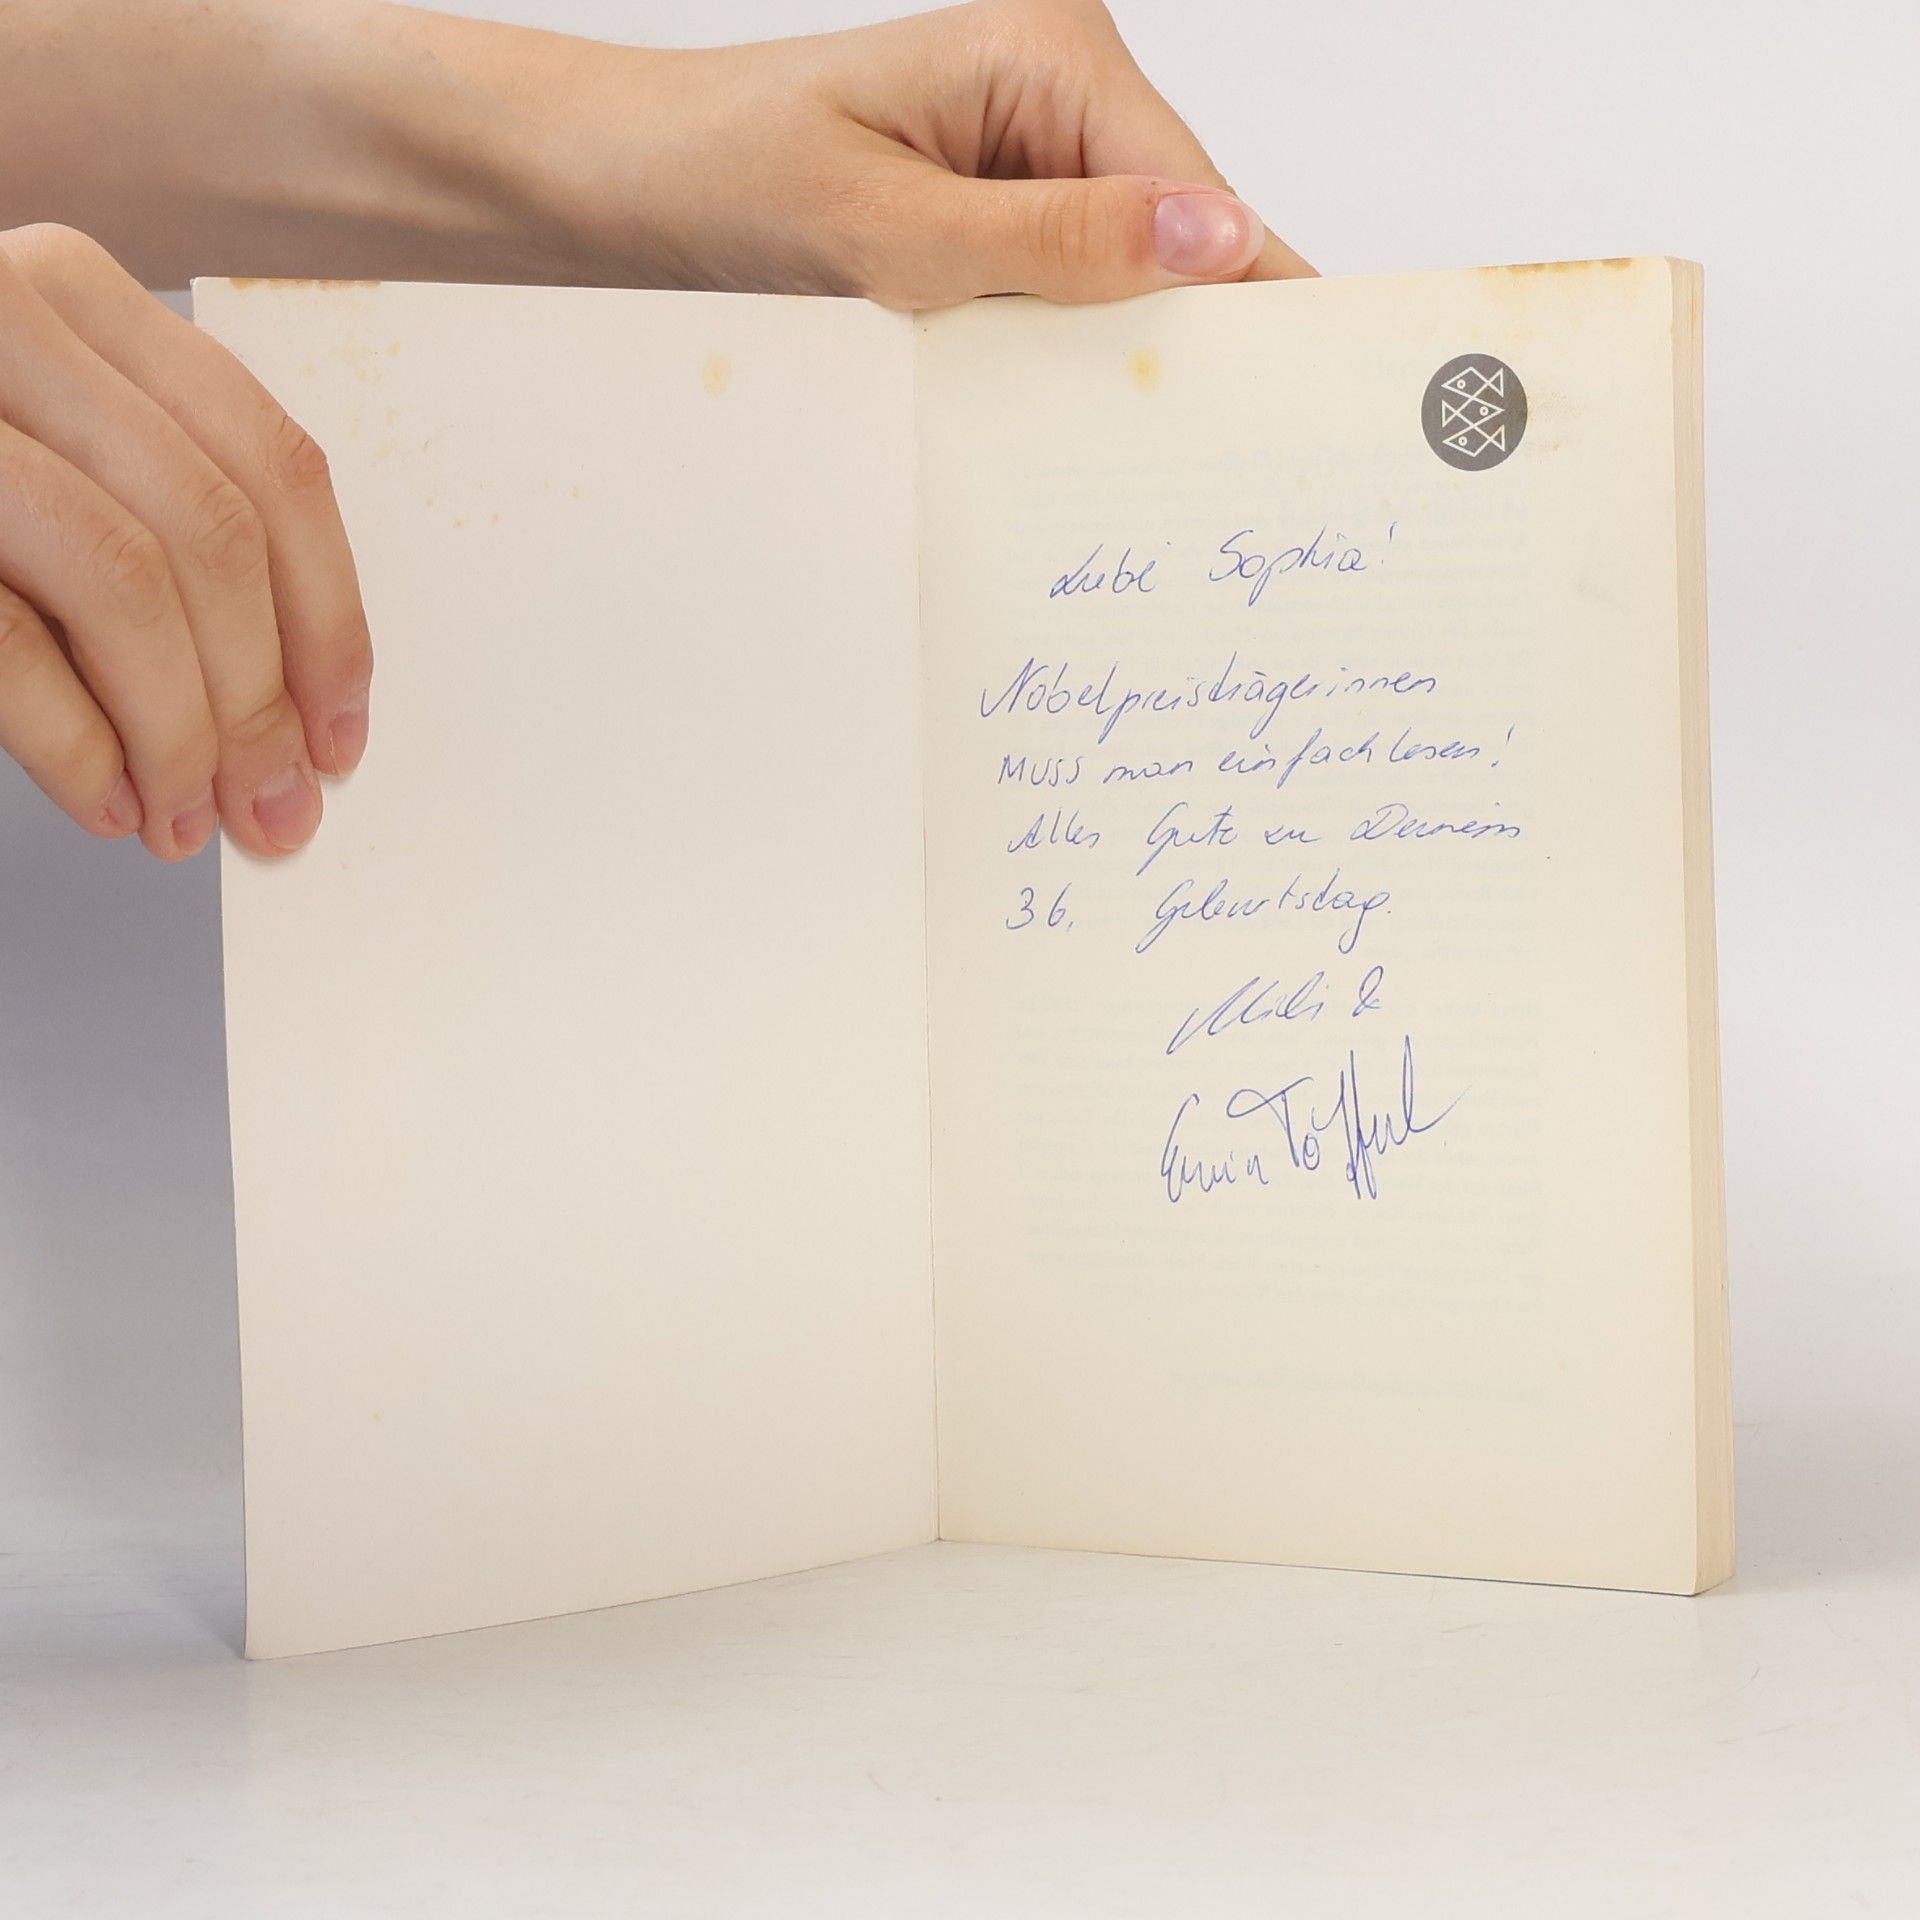 Liebe Sophia!
Nobelpreisträgerinnen
muss man einfach lesen!
Alles Gute zu Deinem
36. Geburtstag.
&
Erwin